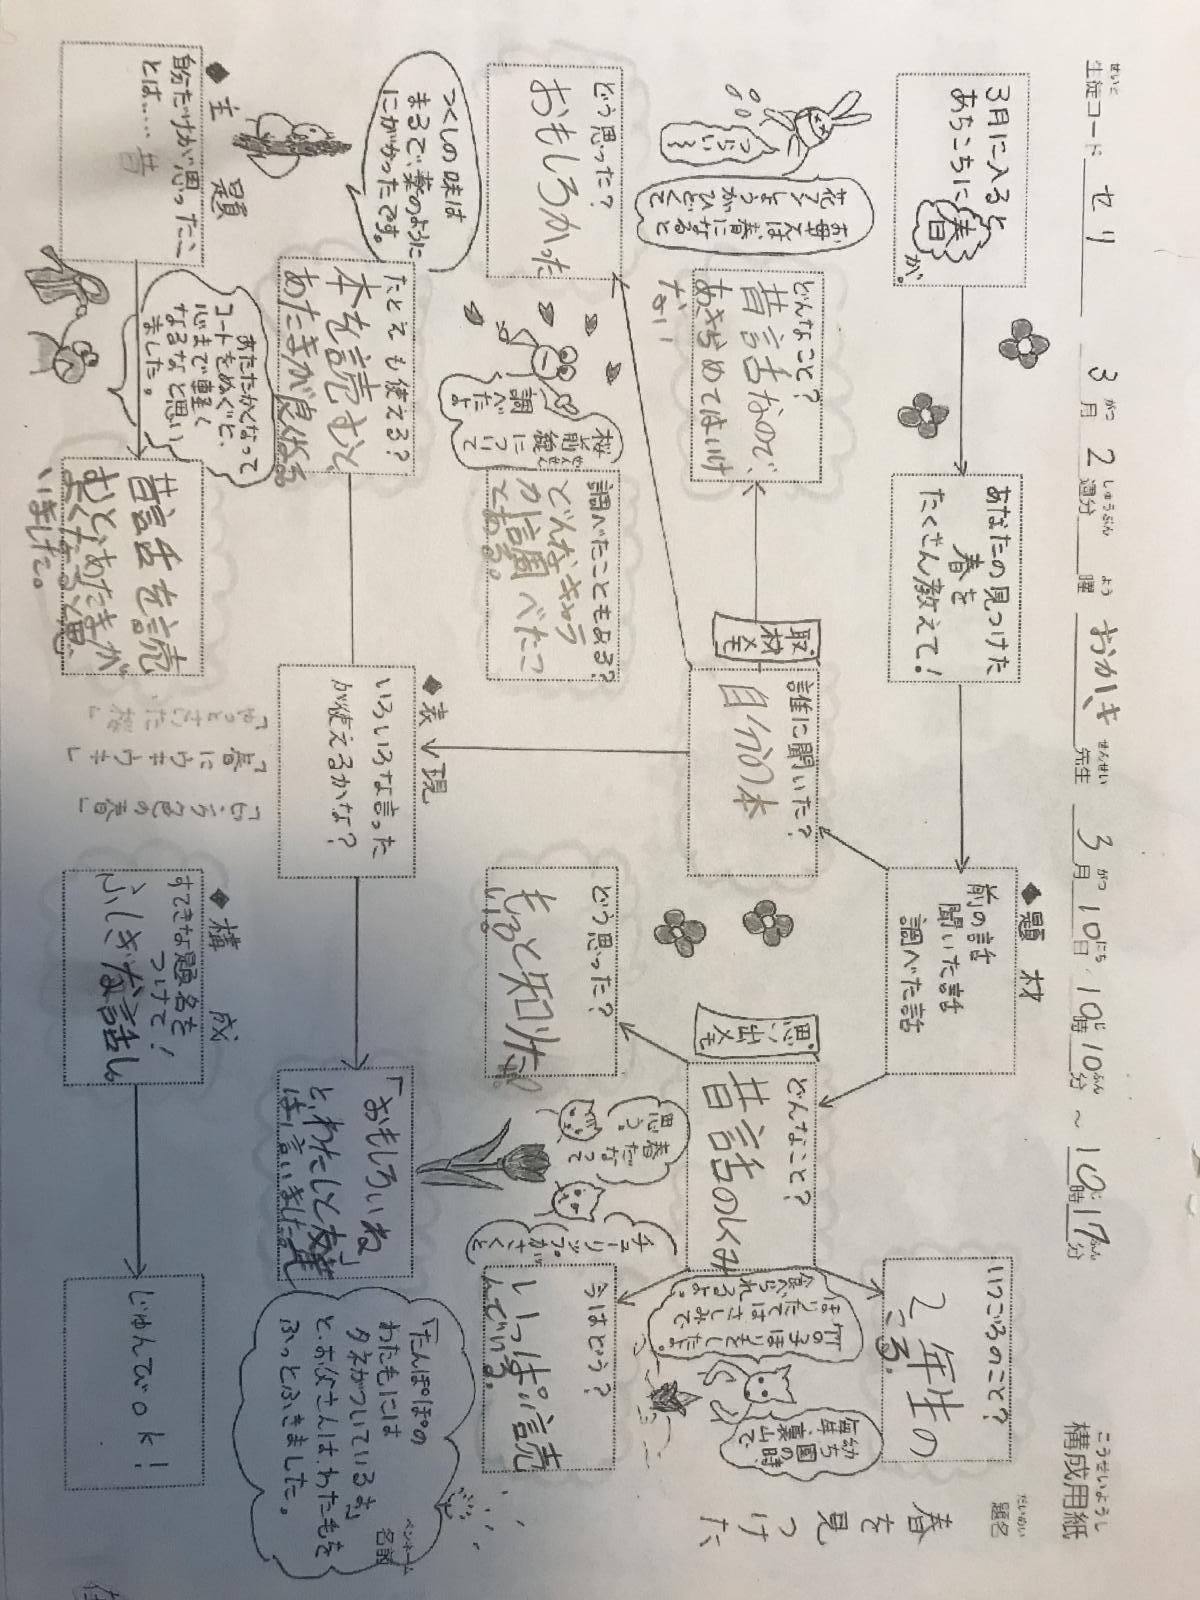 こうせいようし
構成用紙
だいめい
題名
春を見つけた
ペンネーム
名前
せいと
生徒コード セリ 3月2週分 曜 おかしき 先生 3月10日 10時10分 ～ 10時17分
3月に入ると
あちこちに春が。
あなたの見つけた
春を
たくさん教えて!
◆題材
前の話
聞いた話
調べた話
いつごろのこと?
2年生の
ころ。
取材メモ
誰に聞いた?
自分の本
どんなこと?
昔話なので、
あきらめてはいけ
ない
どう思った?
おもしろかった
調べたこともある?
どんなキャラ
か調べたっ
てある。
思い出メモ
どんなこと?
昔話のしくみ
どう思った?
もっと知りたい。
今はどう?
いっぱい読
んでいる。
お母さんは、春になると
花フンしょうがひどくて
つらい~
桜前線について
調べたよ
春だなって
思う。
チューリップがさくと
幼ち園の時、
毎年、裏山で
竹の子ほりをしたよ。
ほりたてはさしみで
食べられるよ。
◆表現
いろいろな言った
が使えるかな?
たとえも使える?
本を読むと、
あたまが良くなる
つくしの味は
まるで、薬のように
にがかったです。
「おもしろいね」
と、わたしと友達
は言いました。
「たんぽぽの
わた毛には
タネがついているよ」
と、お父さんは、わた毛を
ふっとふきました。
◆主題
自分だけが思ったこ
とは…… 昔
あたたかくなって
コートをぬぐと、
心まで軽く
なるなと思い
ました。
昔話を読
むと、あたまが
良くなると思
いました。
◆構成
すてきな題名を
つけて!
ふしぎな話し
「やっとさいた桜」
「春にウキウキ」
「ピンク色の春」
じゅんびok!